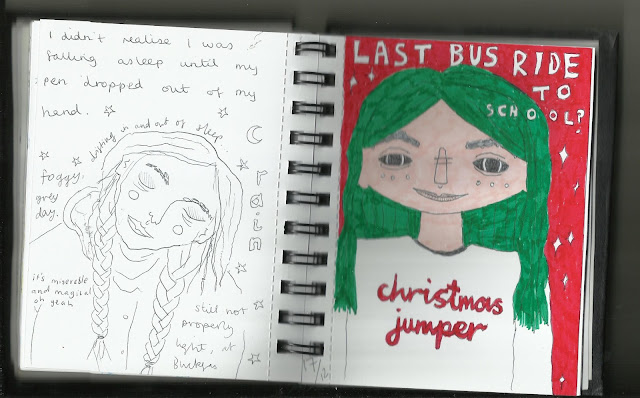 I didn't realise I was
falling asleep until my
pen dropped out of my
hand.
drifting in and out of sleep
foggy,
grey
day.
rain
it's miserable
and magical
oh yeah
still not
properly
light, at
LAST BUS RIDE
TO
SCHOOL?
christmas
jumper